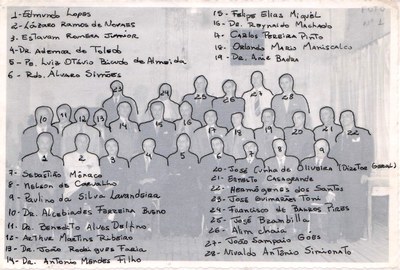 1- Edmundo Lopes
2- Lázaro Ramos de Novaes
3- Estavam Romera Junior
4- Dr Ademar de Toledo
5- Pe. Luis Otávio Bicudo de Almeida
6- Rdo. Alvaro Simões
15- Felipe Elias Miguel
16- Dr. Reynaldo Machado
17- Carlos Pereira Pinto
18- Orlando Mario Maniscalco
19- Dr. Anie Badra
23
24
25
26
27
28
10
11
12
13
14
15
16
17
18
19
20
21
22
1
2
3
4
5
6
7
8
9
7- Sebastião Mônaco
8- Nelson de Carvalho
9- Paulino da Silva Lavandeira
10- Dr. Alcebíades Ferreira Bueno
11- Dr. Benedito Alves Delfino
12- Arthur Martins Ribeiro
13- Dr. João Rodrigues Faria
14- Dr. Antonio Mendes Filho
20- José Cunha de Oliveira (Diretor Geral)
21- Ernesto Casagrande
22- Hermógenes dos Santos
23- José Guimarães Toni
24- Francisco de Barros Pires
25- José Brambilla
26- Alim Chaia
27- João Sampaio Góes
28- Nivaldo Antônio Simionato